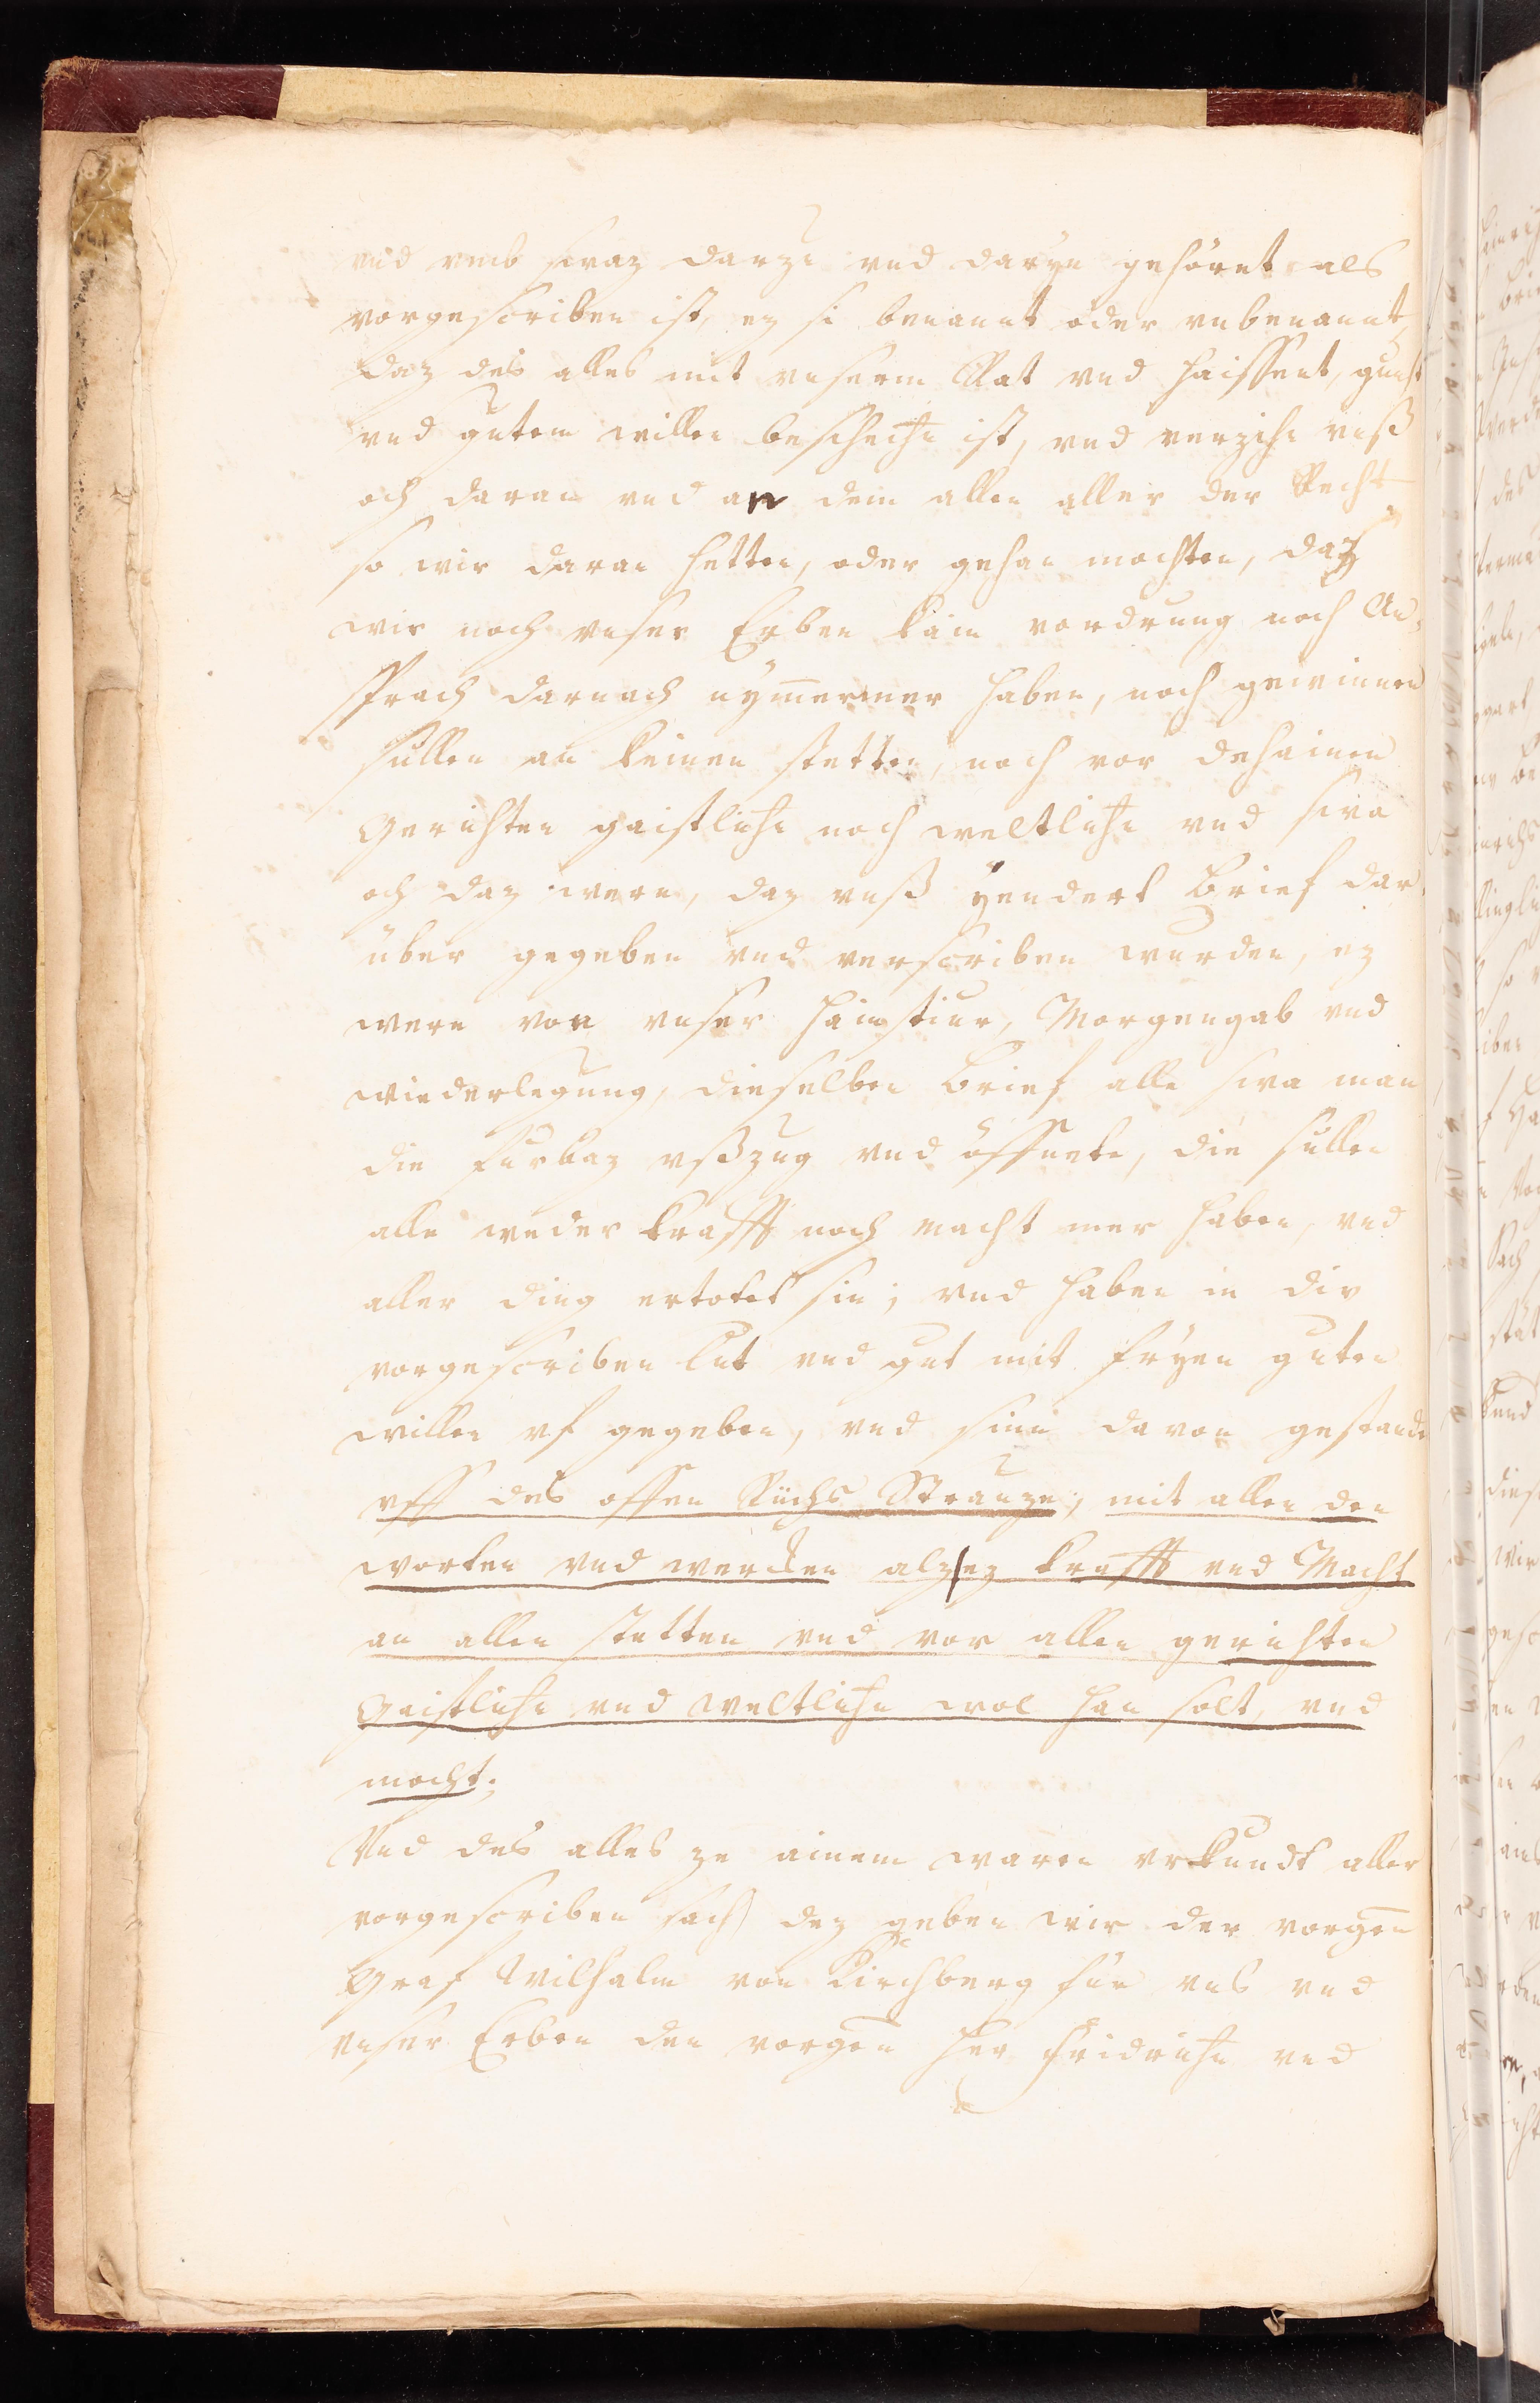 vnd vmb swaz darzu vnd daryn gehöret als
vorgescriben ist, ez si benannt oder vnbenannt,
daz des alles mit vnserm Rat vnd haissent, gunst
vnd gutem willen beschechen ist, vnd verzihe vnß
och daran vnd an dem allen aller der Recht
so wir daran hetten, oder gehan mochten, daz
wir noch vnser Erben kain vordrung noch An,
sprach darnach nymermer haben, noch gewinnen
süllen an keinen stetten, noch vor dehainen
Gerichten gaistliche noch weltliche vnd swa
och daz were, daz vnß yendert Brief dar,
über gegeben vnd verscriben wurden, ez
were von vnser haimstiur, Morgengab vnd
wiederlegung, dieselben Brief alle swa man
die furbaz vßzug vnd öffnete, die süllen
alle weder krafft noch macht mer haben, vnd
aller ding ertotet sin; vnd haben in die
vorgescriben lut vnd gut mit fryen guten
willen vf gegeben, vnd sinn davon gestanden
vff des offen Richs Strauze, mit allen den
worten vnd wercken alz ez krafft vnd Macht
an allen stetten vnd vor allen gerichten
Gaistliche vnd weltliche wol han solt, vnd
mocht;
Vnd des alles ze ainem waren vrkundt aller
vorgescriben sach, dez geben wir der vorgen
Graf Wilhalm von Kirchberg für vns vnd
vnser Erben den vorgen her Fridriche vnd